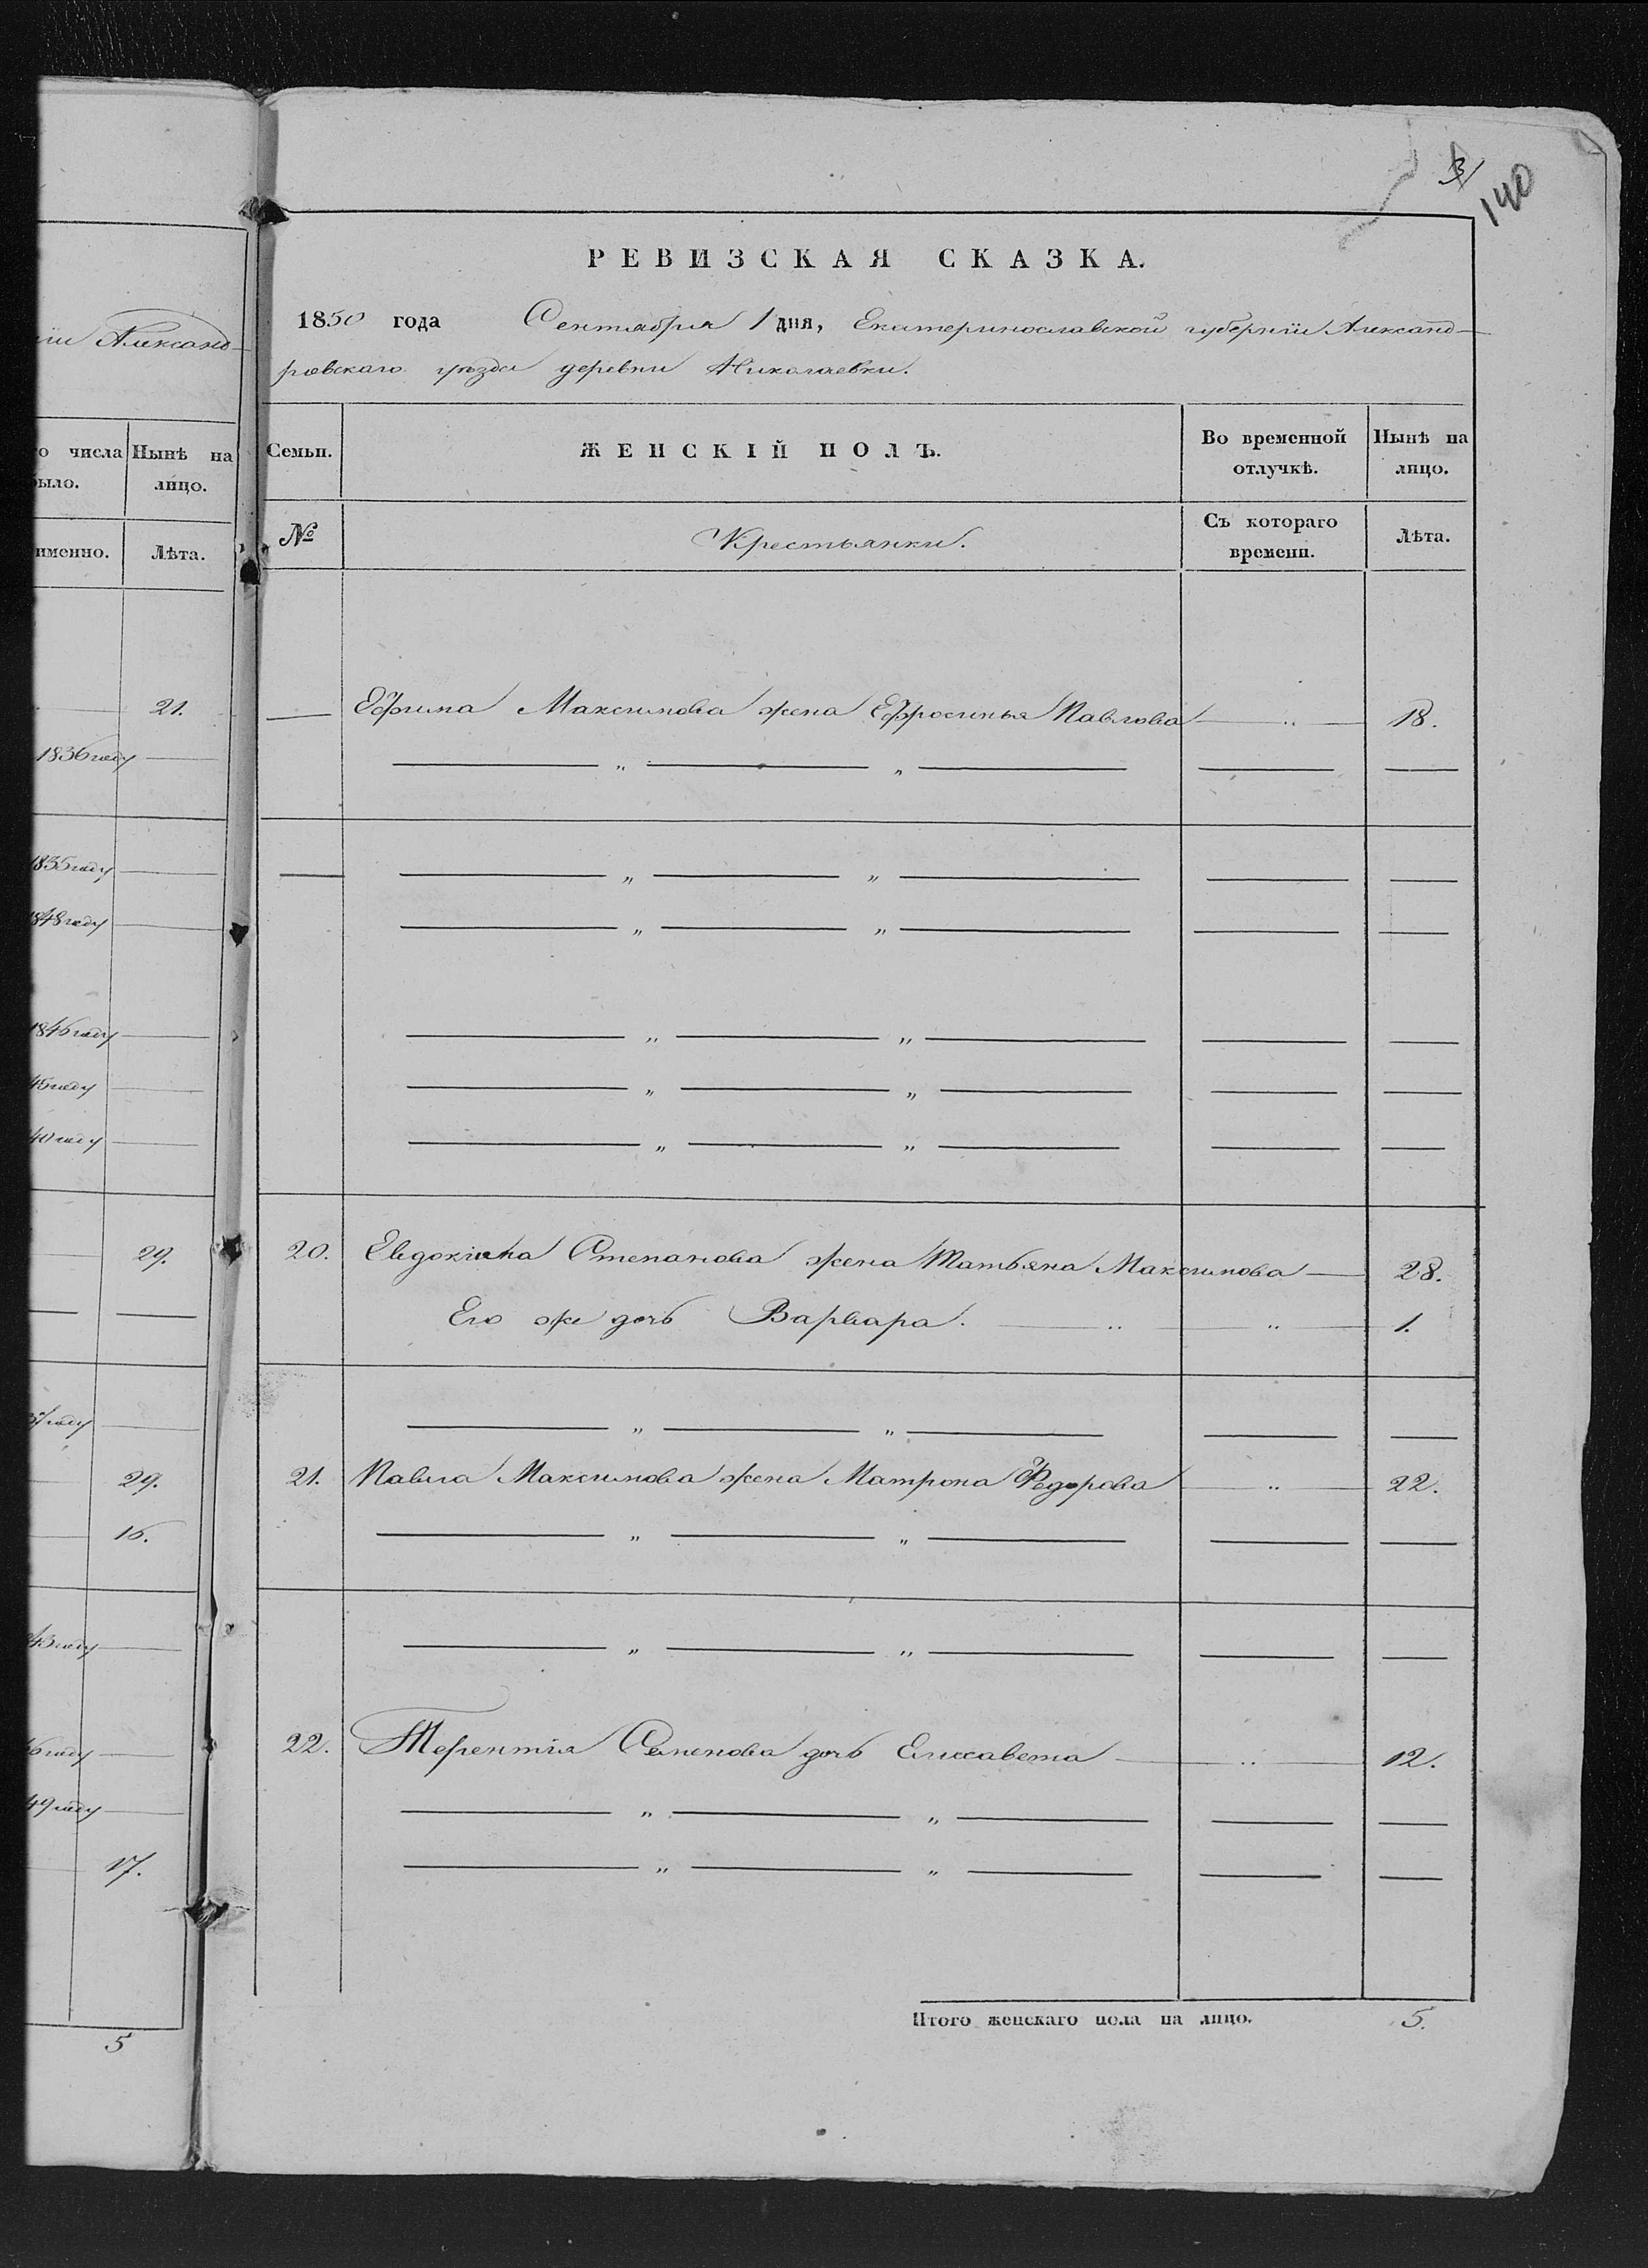 140
РЕВИЗСКАЯ СКАЗКА.
1850 года Сентября 1 дня, Екатеринославской губернiи Александ-
ровскаго уѣзда деревни Николаевки.
iи Александ-
о числа Нынѣ на
было. лицо.
именно. Лѣта.
Семьи. ЖЕНСКIЙ ПОЛЪ. Во временной отлучкѣ. Нынѣ на лицо.
№ Крестьянки. Съ котораго времени. Лѣта.
21.
Ефима Максимова жена Ефросинья Павлова — „ — 18.
1836 году —
— „ — „ — — —
1835 году —
— — „ — „ — — —
1848 году —
— „ — „ — — —
1846 году —
— „ — „ — — —
45 году —
— „ — „ — — —
40 году —
— „ — „ — — —
29.
20. Евдокима Степанова жена Татьяна Максимова — 28.
Его же дочь Варвара. — „ — „ — 1.
37 году —
— „ — „ — — —
29.
21. Павла Максимова жена Матрона Федорова — „ — 22.
16.
— „ — „ — — —
43 году —
— „ — „ — — —
6 году —
22. Терентiя Семенова дочь Елисавета — „ — 12.
49 году —
— „ — „ — — —
17.
— „ — „ — — —
5
Итого женскаго пола на лицо. 5.